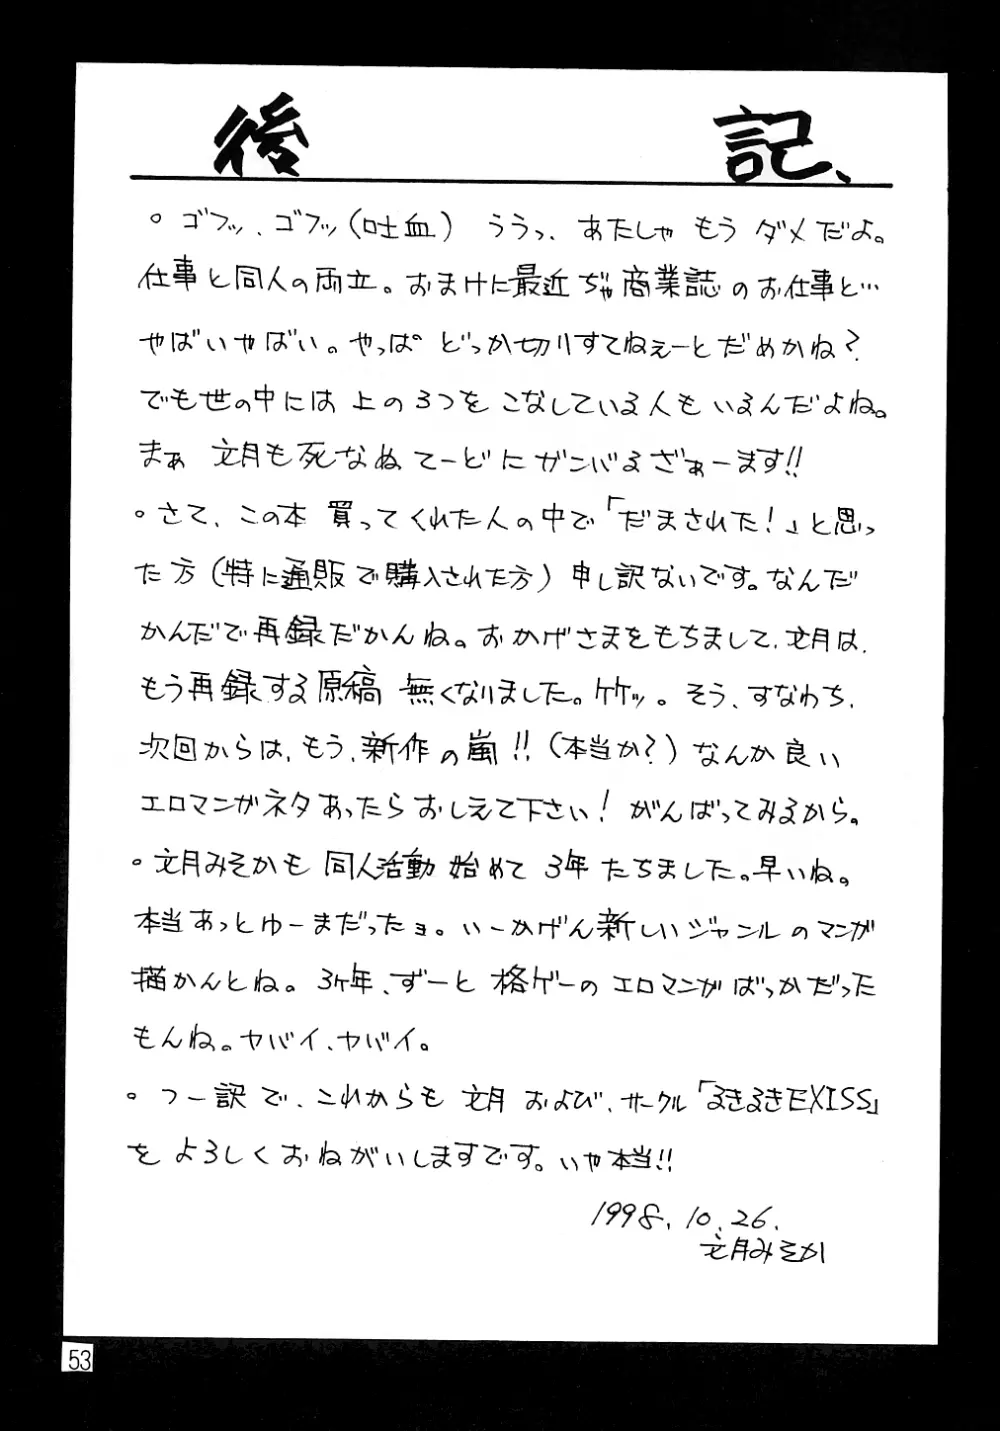 後記、
◦ ゴフッ、ゴフッ(吐血) ううっ、あたしゃ もう ダメだよ。
仕事と同人の両立。おまけに最近ぢゃ商業誌のお仕事と…
やばいやばい。やっぱ どっか切りすてねぇーとだめかね?
でも世の中には上の3つをこなしている人もいるんだよね。
まぁ 文月も死なぬてーどにガンバるざぁーます!!
◦さて、この本 買ってくれた人の中で「だまされた!」と思っ
た方(特に通販で購入された方)申し訳ないです。なんだ
かんだで再録だかんね。おかげさまをもちまして、文月は、
もう再録する原稿 無くなりました。ケケッ。そう、すなわち、
次回からは、もう、新作の嵐!!(本当か?)なんか良い
エロマンガネタあったらおしえて下さい!がんばってみるから。
◦文月みそかも 同人活動 始めて 3年 たちました。早いね。
本当あっとゆーまだったョ。いーかげん新しいジャンルのマンガ
描かんとね。3ヶ年、ずーと 格ゲーの エロマンガばっかだった
もんね。ヤバイ、ヤバイ。
◦つー訳で、これからも 文月 および、サークル「るきるきEXISS」
を よろしくおねがいしますです。いや本当!!
1998.10.26.
文月みそか
53